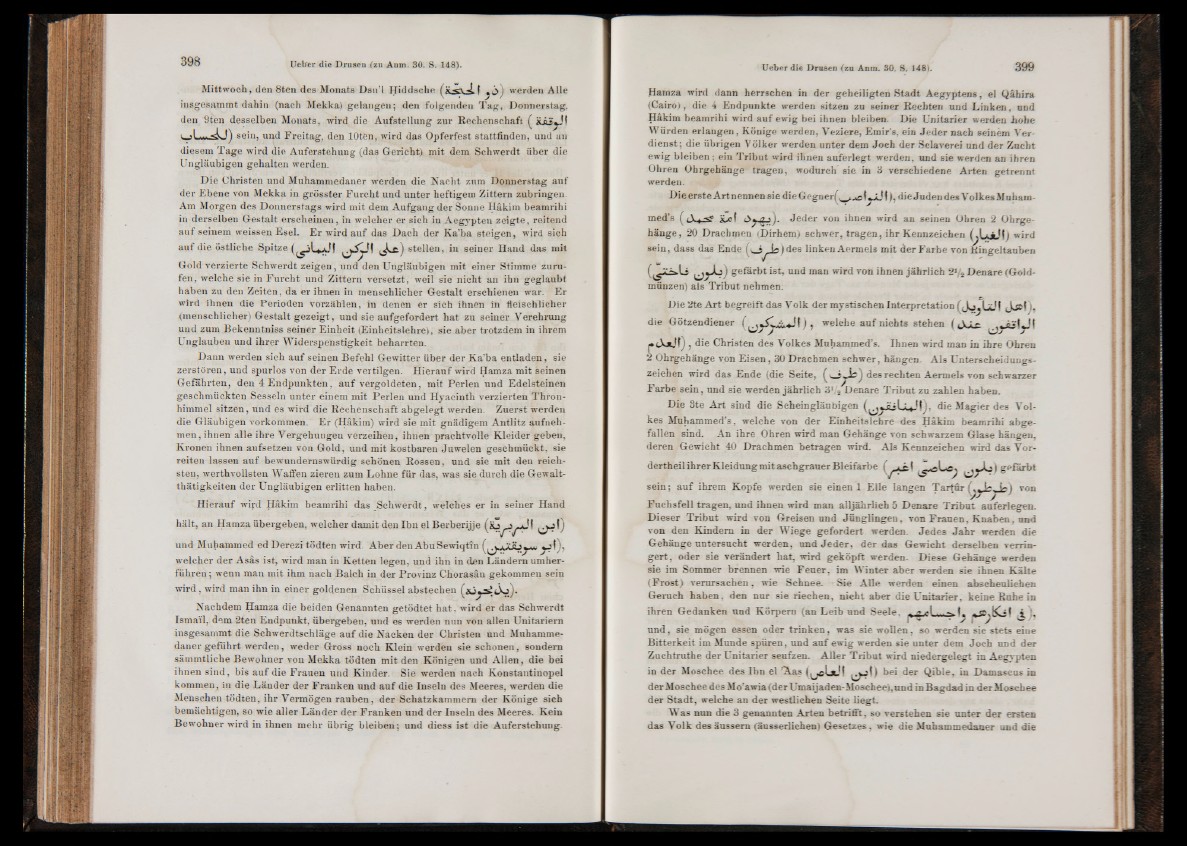 398
Ueber die Drusen (zu Anm. 30. S. 148).
Mittwoch, den 8ten des Monats Dsu'l Ḥiddsche (ذو الحجّة) werden Alle
insgesammt dahin (nach Mekka) gelangen; den folgenden Tag, Donnerstag.
den 9ten desselben Monats, wird die Aufstellung zur Rechenschaft (الوقفة
للحساب) sein, und Freitag, den 10ten, wird das Opferfest stattfinden, und an
diesem Tage wird die Auferstehung (das Gericht) mit dem Schwerdt über die
Ungläubigen gehalten werden.
Die Christen und Muhammedaner werden die Nacht zum Donnerstag auf
der Ebene von Mekka in grösster Furcht und unter heftigem Zittern zubringen.
Am Morgen des Donnerstags wird mit dem Aufgang der Sonne Ḥâkim beamrihi
in derselben Gestalt erscheinen, in welcher er sich in Aegypten zeigte, reitend
auf seinem weissen Esel. Er wird auf das Dach der Ka'ba steigen, wird sich
auf die östliche Spitze (على الركن اليماني) stellen, in seiner Hand das mit
Gold verzierte Schwerdt zeigen, und den Ungläubigen mit einer Stimme zuru-
fen, welche sie in Furcht und Zittern versetzt, weil sie nicht an ihn geglaubt
haben zu den Zeiten, da er ihnen in menschlicher Gestalt erschienen war. Er
wird ihnen die Perioden vorzählen, in denen er sich ihnen in fleischlicher
(menschlicher) Gestalt gezeigt, und sie aufgefordert hat zu seiner Verehrung
und zum Bekenntniss seiner Einheit (Einheitslehre), sie aber trotzdem in ihrem
Unglauben und ihrer Widerspenstigkeit beharrten.
Dann werden sich auf seinen Befehl Gewitter über der Ka'ba entladen, sie
zerstören, und spurlos von der Erde vertilgen. Hierauf wird Ḥamza mit seinen
Gefährten, den 4 Endpunkten, auf vergoldeten, mit Perlen und Edelsteinen
geschmückten Sesseln unter einem mit Perlen und Hyacinth verzierten Thron-
himmel sitzen, und es wird die Rechenschaft abgelegt werden. Zuerst werden
die Gläubigen vorkommen. Er (Ḥâkim) wird sie mit gnädigem Antlitz aufneh-
men, ihnen alle ihre Vergehungen verzeihen, ihnen prachtvolle Kleider geben,
Kronen ihnen aufsetzen von Gold, und mit kostbaren Juwelen geschmückt, sie
reiten lassen auf bewundernswürdig schönen Rossen, und sie mit den reich-
sten, werthvollsten Waffen zieren zum Lohne für das, was sie durch die Gewalt-
thätigkeiten der Ungläubigen erlitten haben.
Hierauf wird Ḥâkim beamrihi das Schwerdt, welches er in seiner Hand
hält, an Hamza übergeben, welcher damit den Ibn el Berberijje (ابن البربريّة)
und Muḥammed ed Derezi tödten wird Aber den Abu Sewiqtîn (ابو سويقتين),
welcher der Asâs ist, wird man in Ketten legen, und ihn in den Ländern umher-
führen; wenn man mit ihm nach Balch in der Provinz Chorasân gekommen sein
wird, wird man ihn in einer goldenen Schüssel abstechen (يذبحونه).
Nachdem Ḥamza die beiden Genannten getödtet hat, wird er das Schwerdt
Ismaïl, dem 2ten Endpunkt, übergeben, und es werden nun von allen Unitariern
insgesammt die Schwerdtschläge auf die Nacken der Christen und Muhamme-
daner geführt werden, weder Gross noch Klein werden sie schonen, sondern
sämmtliche Bewohner von Mekka tödten mit den Königen und Allen, die bei
ihnen sind, bis auf die Frauen und Kinder. Sie werden nach Konstantinopel
kommen, in die Länder der Franken und auf die Inseln des Meeres, werden die
Menschen tödten, ihr Vermögen rauben, der Schatzkammern der Könige sich
bemächtigen, so wie aller Länder der Franken und der Inseln des Meeres. Kein
Bewohner wird in ihnen mehr übrig bleiben; und diess ist die Auferstehung.
Ueber die Drusen (zu Anm. 30. S. 148).
399
Ḥamza wird dann herrschen in der geheiligten Stadt Aegyptens, el Qâhira
(Cairo), die 4 Endpunkte werden sitzen zu seiner Rechten und Linken, und
Ḥâkim beamrihi wird auf ewig bei ihnen bleiben. Die Unitarier werden hohe
Würden erlangen, Könige werden, Veziere, Emir's, ein Jeder nach seinem Ver-
dienst; die übrigen Völker werden unter dem Joch der Sclaverei und der Zucht
ewig bleiben; ein Tribut wird ihnen auferlegt werden, und sie werden an ihren
Ohren Ohrgehänge tragen, wodurch sie in 3 verschiedene Arten getrennt
werden.
Die erste Art nennen sie die Gegner (النواصب), die Juden des Volkes Muḥam-
med's (يهود امّة محمد). Jeder von ihnen wird an seinen Ohren 2 Ohrge-
hänge, 20 Drachmen (Dirhem) schwer, tragen, ihr Kennzeichen (الغيار) wird
sein, dass das Ende (طرف) des linken Aermels mit der Farbe von Ringeltauben
gefärbt ist, und man wird von ihnen jährlich 2½ Denare (Gold-
münzen) als Tribut nehmen.
Die 2te Art begreift das Volk der mystischen Interpretation (اهل التاويل),
die Götzendiener (المشركون), welche auf nichts stehen (الواقفون عند
العدم), die Christen des Volkes Muḥammed's. Ihnen wird man in ihre Ohren
2 Ohrgehänge von Eisen, 30 Drachmen schwer, hängen. Als Unterscheidungs-
zeichen wird das Ende (die Seite, (طرف) des rechten Aermels von schwarzer
Farbe sein, und sie werden jährlich 3½ Denare Tribut zu zahlen haben.
Die 3te Art sind die Scheingläubigen (المنافقون), die Magier des Vol-
kes Muḥammed's, welche von der Einheitslehre des Ḥâkim beamrihi abge-
fallen sind. An ihre Ohren wird man Gehänge von schwarzem Glase hängen,
deren Gewicht 40 Drachmen betragen wird. Als Kennzeichen wird das Vor-
dertheil ihrer Kleidung mit aschgrauer Bleifarbe (بلون رصاصي اغبر) gefärbt
sein; auf ihrem Kopfe werden sie einen 1 Elle langen Tarṭûr (طرطور) von
Fuchsfell tragen, und ihnen wird man alljährlich 5 Denare Tribut auferlegen.
Dieser Tribut wird von Greisen und Jünglingen, von Frauen, Knaben, und
von den Kindern in der Wiege gefordert werden. Jedes Jahr werden die
Gehänge untersucht werden, und Jeder, der das Gewicht derselben verrin-
gert, oder sie verändert hat, wird geköpft werden. Diese Gehänge werden
sie im Sommer brennen wie Feuer, im Winter aber werden sie ihnen Kälte
(Frost) verursachen, wie Schnee. Sie Alle werden einen abscheulichen
Geruch haben, den nur sie riechen, nicht aber die Unitarier, keine Ruhe in
ihren Gedanken und Körpern (an Leib und Seele, في افكارهم واجسامهم),
und, sie mögen essen oder trinken, was sie wollen, so werden sie stets eine
Bitterkeit im Munde spüren, und auf ewig werden sie unter dem Joch und der
Zuchtruthe der Unitarier seufzen. Aller Tribut wird niedergelegt in Aegypten
in der Moschee des Ibn el 'Âas (ابن العاص) bei der Qible, in Damascus in
der Moschee des Mo'awia (der Umaijaden-Moschee), und in Bagdad in der Moschee
der Stadt, welche an der westlichen Seite liegt.
Was nun die 3 genannten Arten betrifft, so verstehen sie unter der ersten
das Volk des äussern (äusserlichen) Gesetzes, wie die Muhammedaner und die